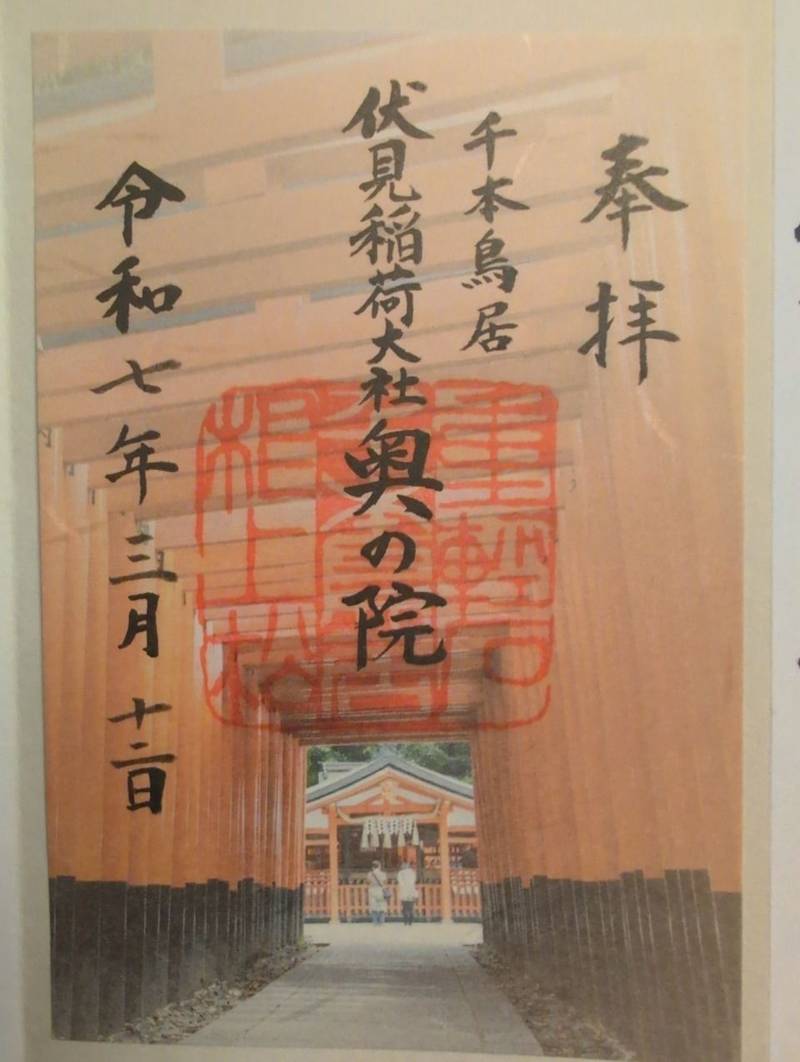 奉拝
千本鳥居
伏見稲荷大社奥の院
令和七年三月十二日
重輕石
根上松